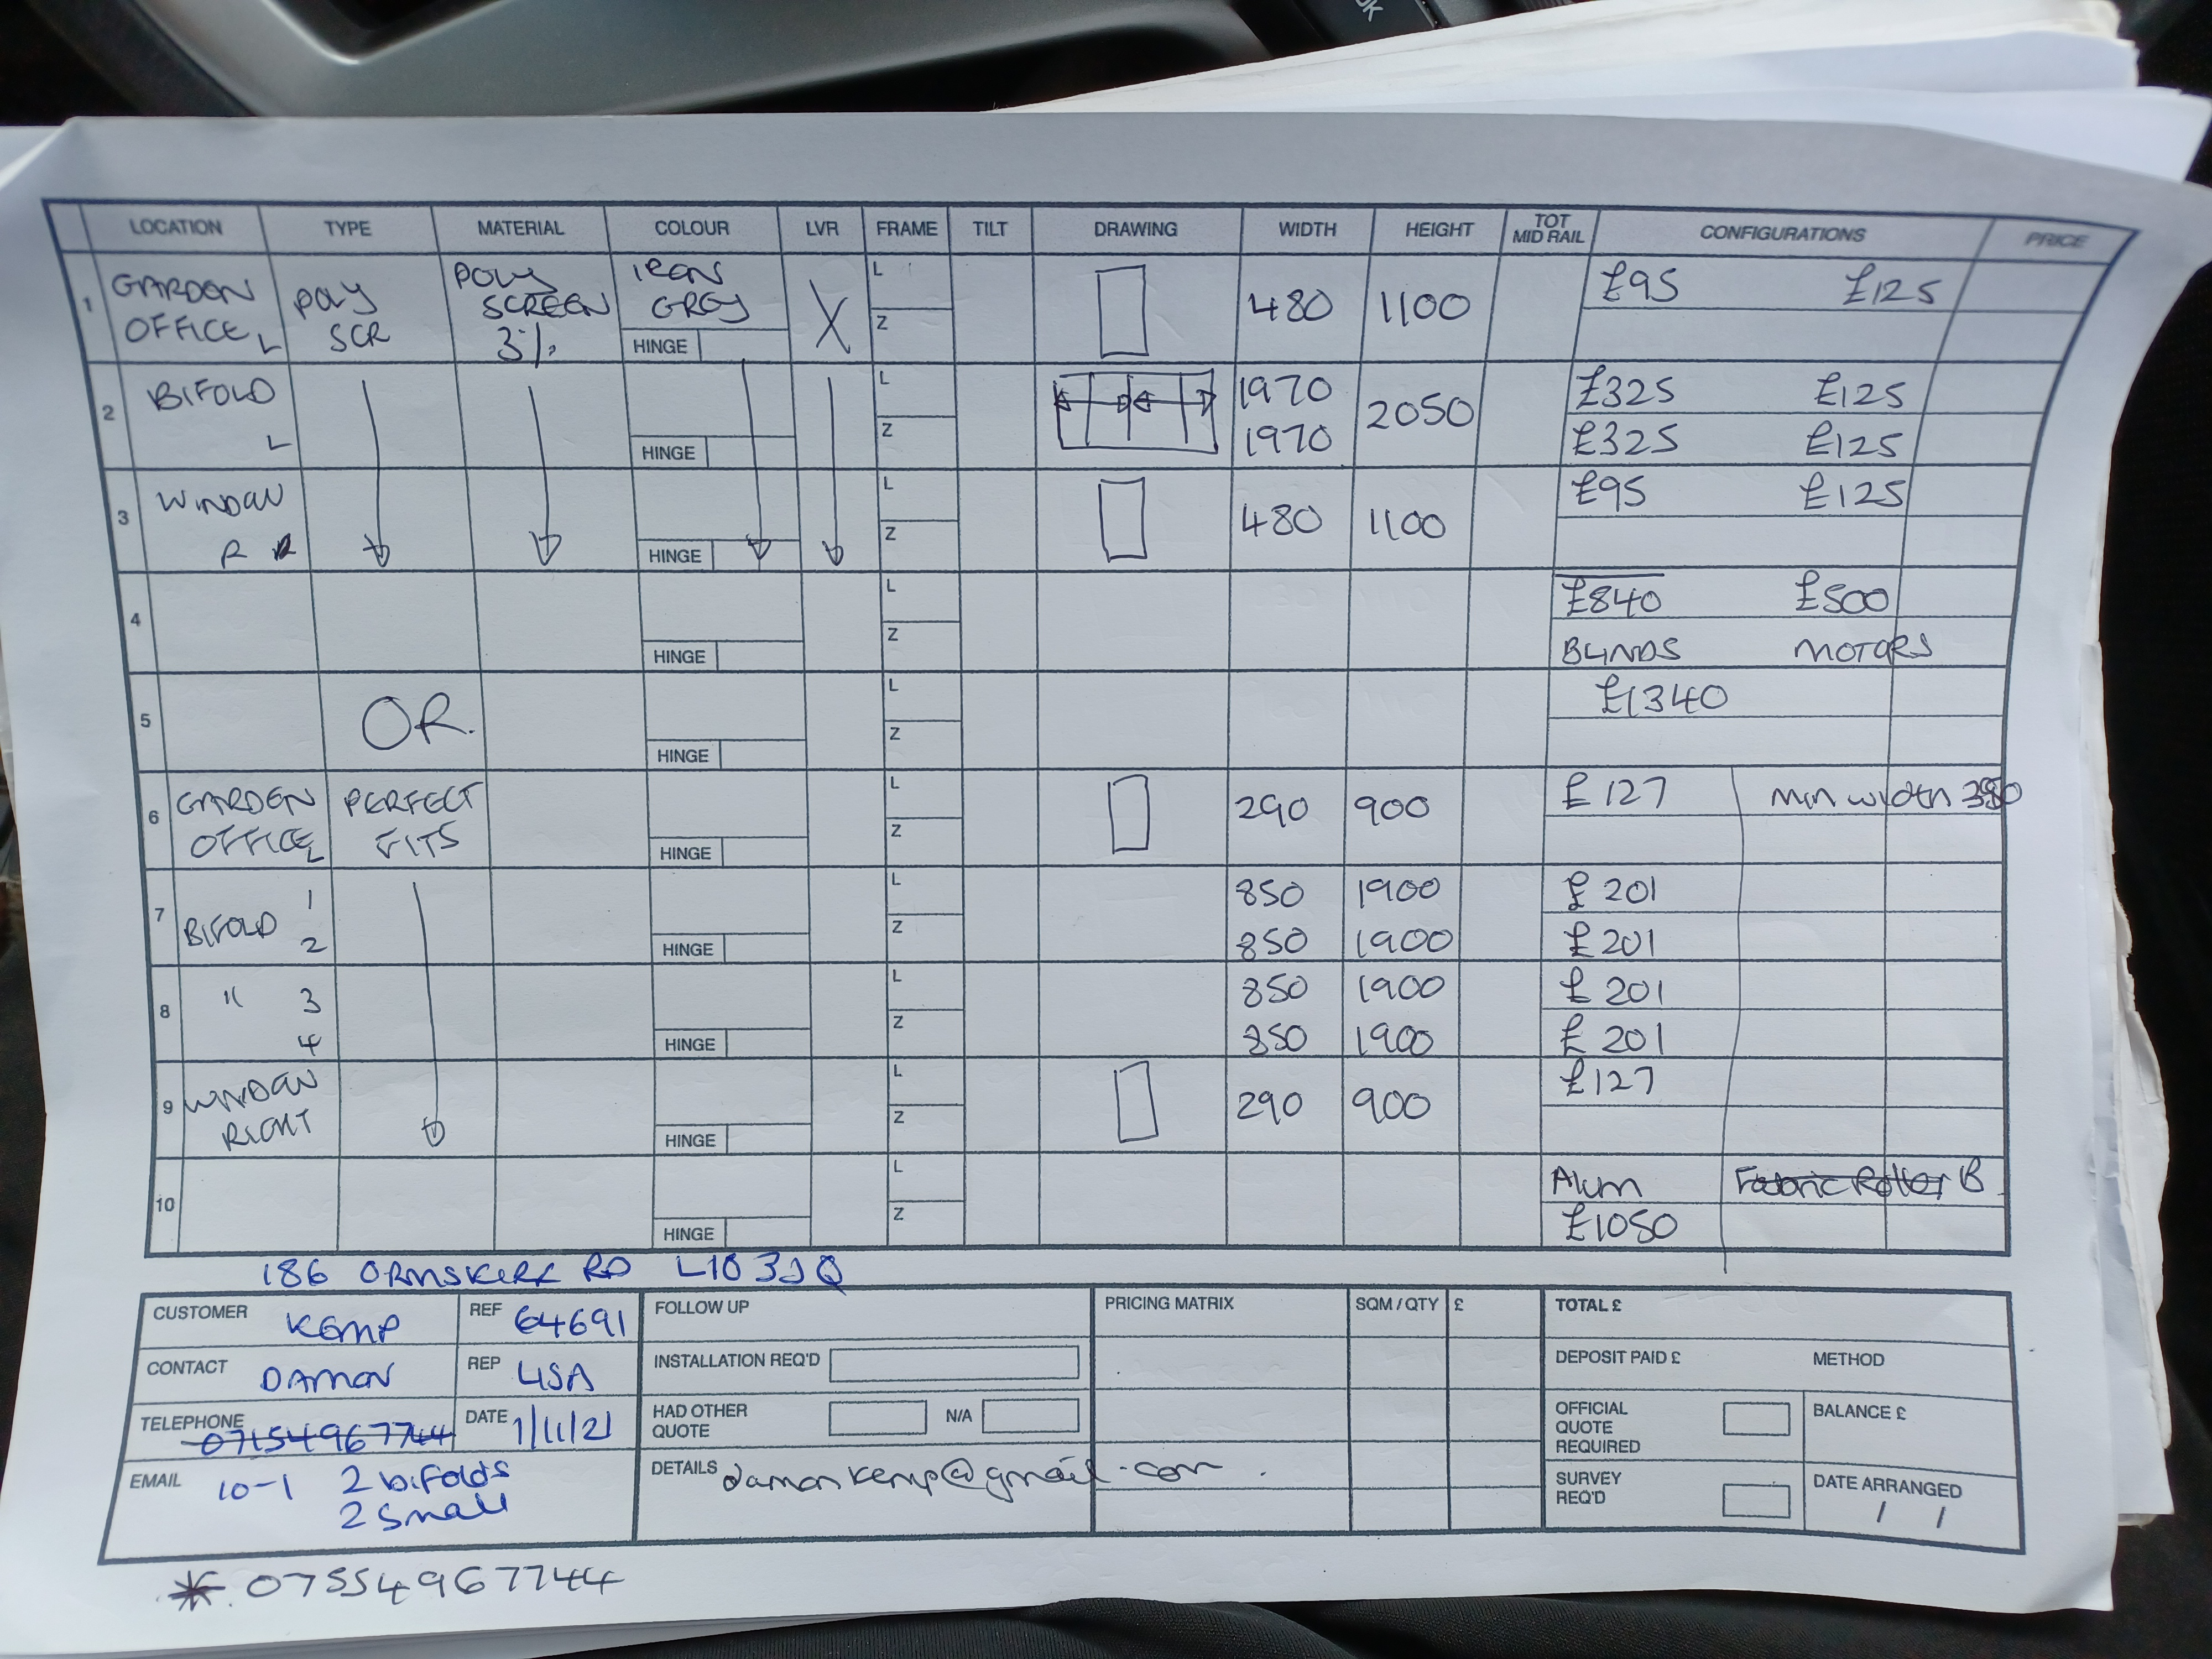 OK
LOCATION TYPE MATERIAL COLOUR LVR FRAME TILT DRAWING WIDTH HEIGHT TOT MID RAIL CONFIGURATIONS PRICE
1 GARDEN OFFICE L POLY SCR POLY SCREEN 3% IRON GREY HINGE X L Z 480 1100 £95 £125
2 BIFOLD L HINGE L Z 1970 2050 £325 £125
1970 £325 £125
3 WINDOW R HINGE L Z 480 1100 £95 £125
4 HINGE L Z £840 £500
BLINDS MOTORS
5 OR. HINGE L Z £1340
6 GARDEN OFFICE L PERFECT FITS HINGE L Z 290 900 £127 min width 380
7 BIFOLD 1 HINGE L Z 850 1900 £201
2 850 1900 £201
8 " 3 HINGE L Z 850 1900 £201
4 850 1900 £201
9 WINDOW RIGHT HINGE L Z 290 900 £127
10 HINGE L Z Alum Fabric Roller B
£1050
186 ORMSKIRK RD L10 3JQ
CUSTOMER KEMP REF 64691 FOLLOW UP PRICING MATRIX SQM / QTY £ TOTAL £
CONTACT DAMON REP LISA INSTALLATION REQ'D DEPOSIT PAID £ METHOD
TELEPHONE 07154967744 DATE 1/11/21 HAD OTHER QUOTE N/A OFFICIAL QUOTE REQUIRED BALANCE £
EMAIL 10-1 2 bifolds DETAILS damonkemp@gmail.com . SURVEY REQ'D DATE ARRANGED / /
2 small
* 07554967744